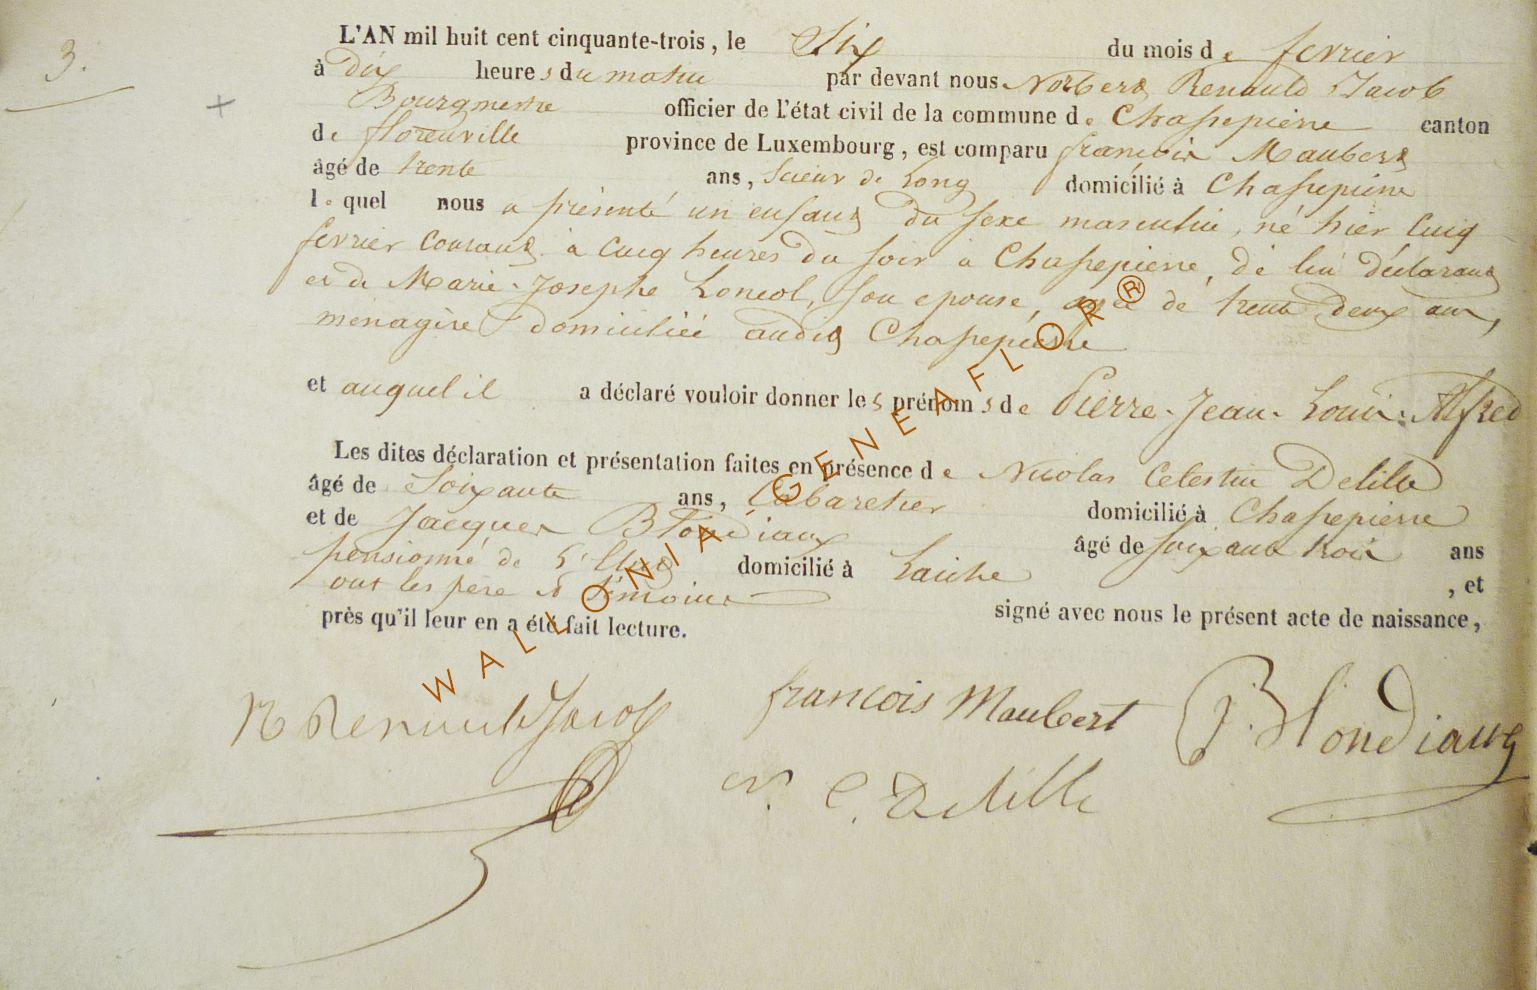 3.
L'AN mil huit cent cinquante-trois, le Six du mois de fevrier
à dix heures du matin par devant nous Norbert Renauld Jacob
Bourgmestre officier de l'état civil de la commune de Chassepierre canton
de florenville province de Luxembourg, est comparu francois Maubert
âgé de trente ans, Scieur de Long domicilié à Chassepierre
le quel nous a présenté un enfant du sexe masculin, né hier cinq
fevrier courant à cinq heures du soir à Chassepierre, de lui déclarant
et de Marie-Josephe Loncol, son epouse, agée de trente deux ans,
ménagère domiciliée audit Chassepierre
et auquel il a déclaré vouloir donner les prénoms de Pierre-Jean-Louis-Alfred
Les dites déclaration et présentation faites en présence de Nicolas Celestin Delille
âgé de Soixante ans, Cabaretier domicilié à Chassepierre
et de Jacques Blondiaux âgé de soixante trois ans
pensionné de l'Etat domicilié à Laiche
ont les père et témoins , et
signé avec nous le présent acte de naissance,
près qu'il leur en a été fait lecture.
N Renauld Jacob
francois Maubert
J. Blondiaux
N. C. Delille
WALLONIA GENEAFLOR ®